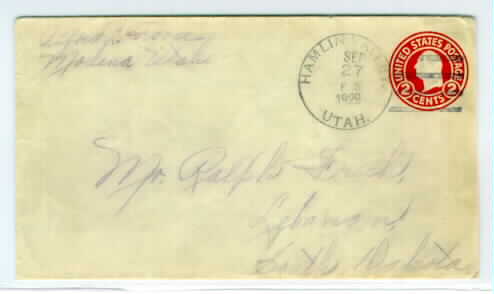 Modena Utah
HAMLIN
SEP
27
1929
UTAH.
UNITED STATES POSTAGE
2 CENTS 2
Mr. Ralph
Lebanon,
South Dakota